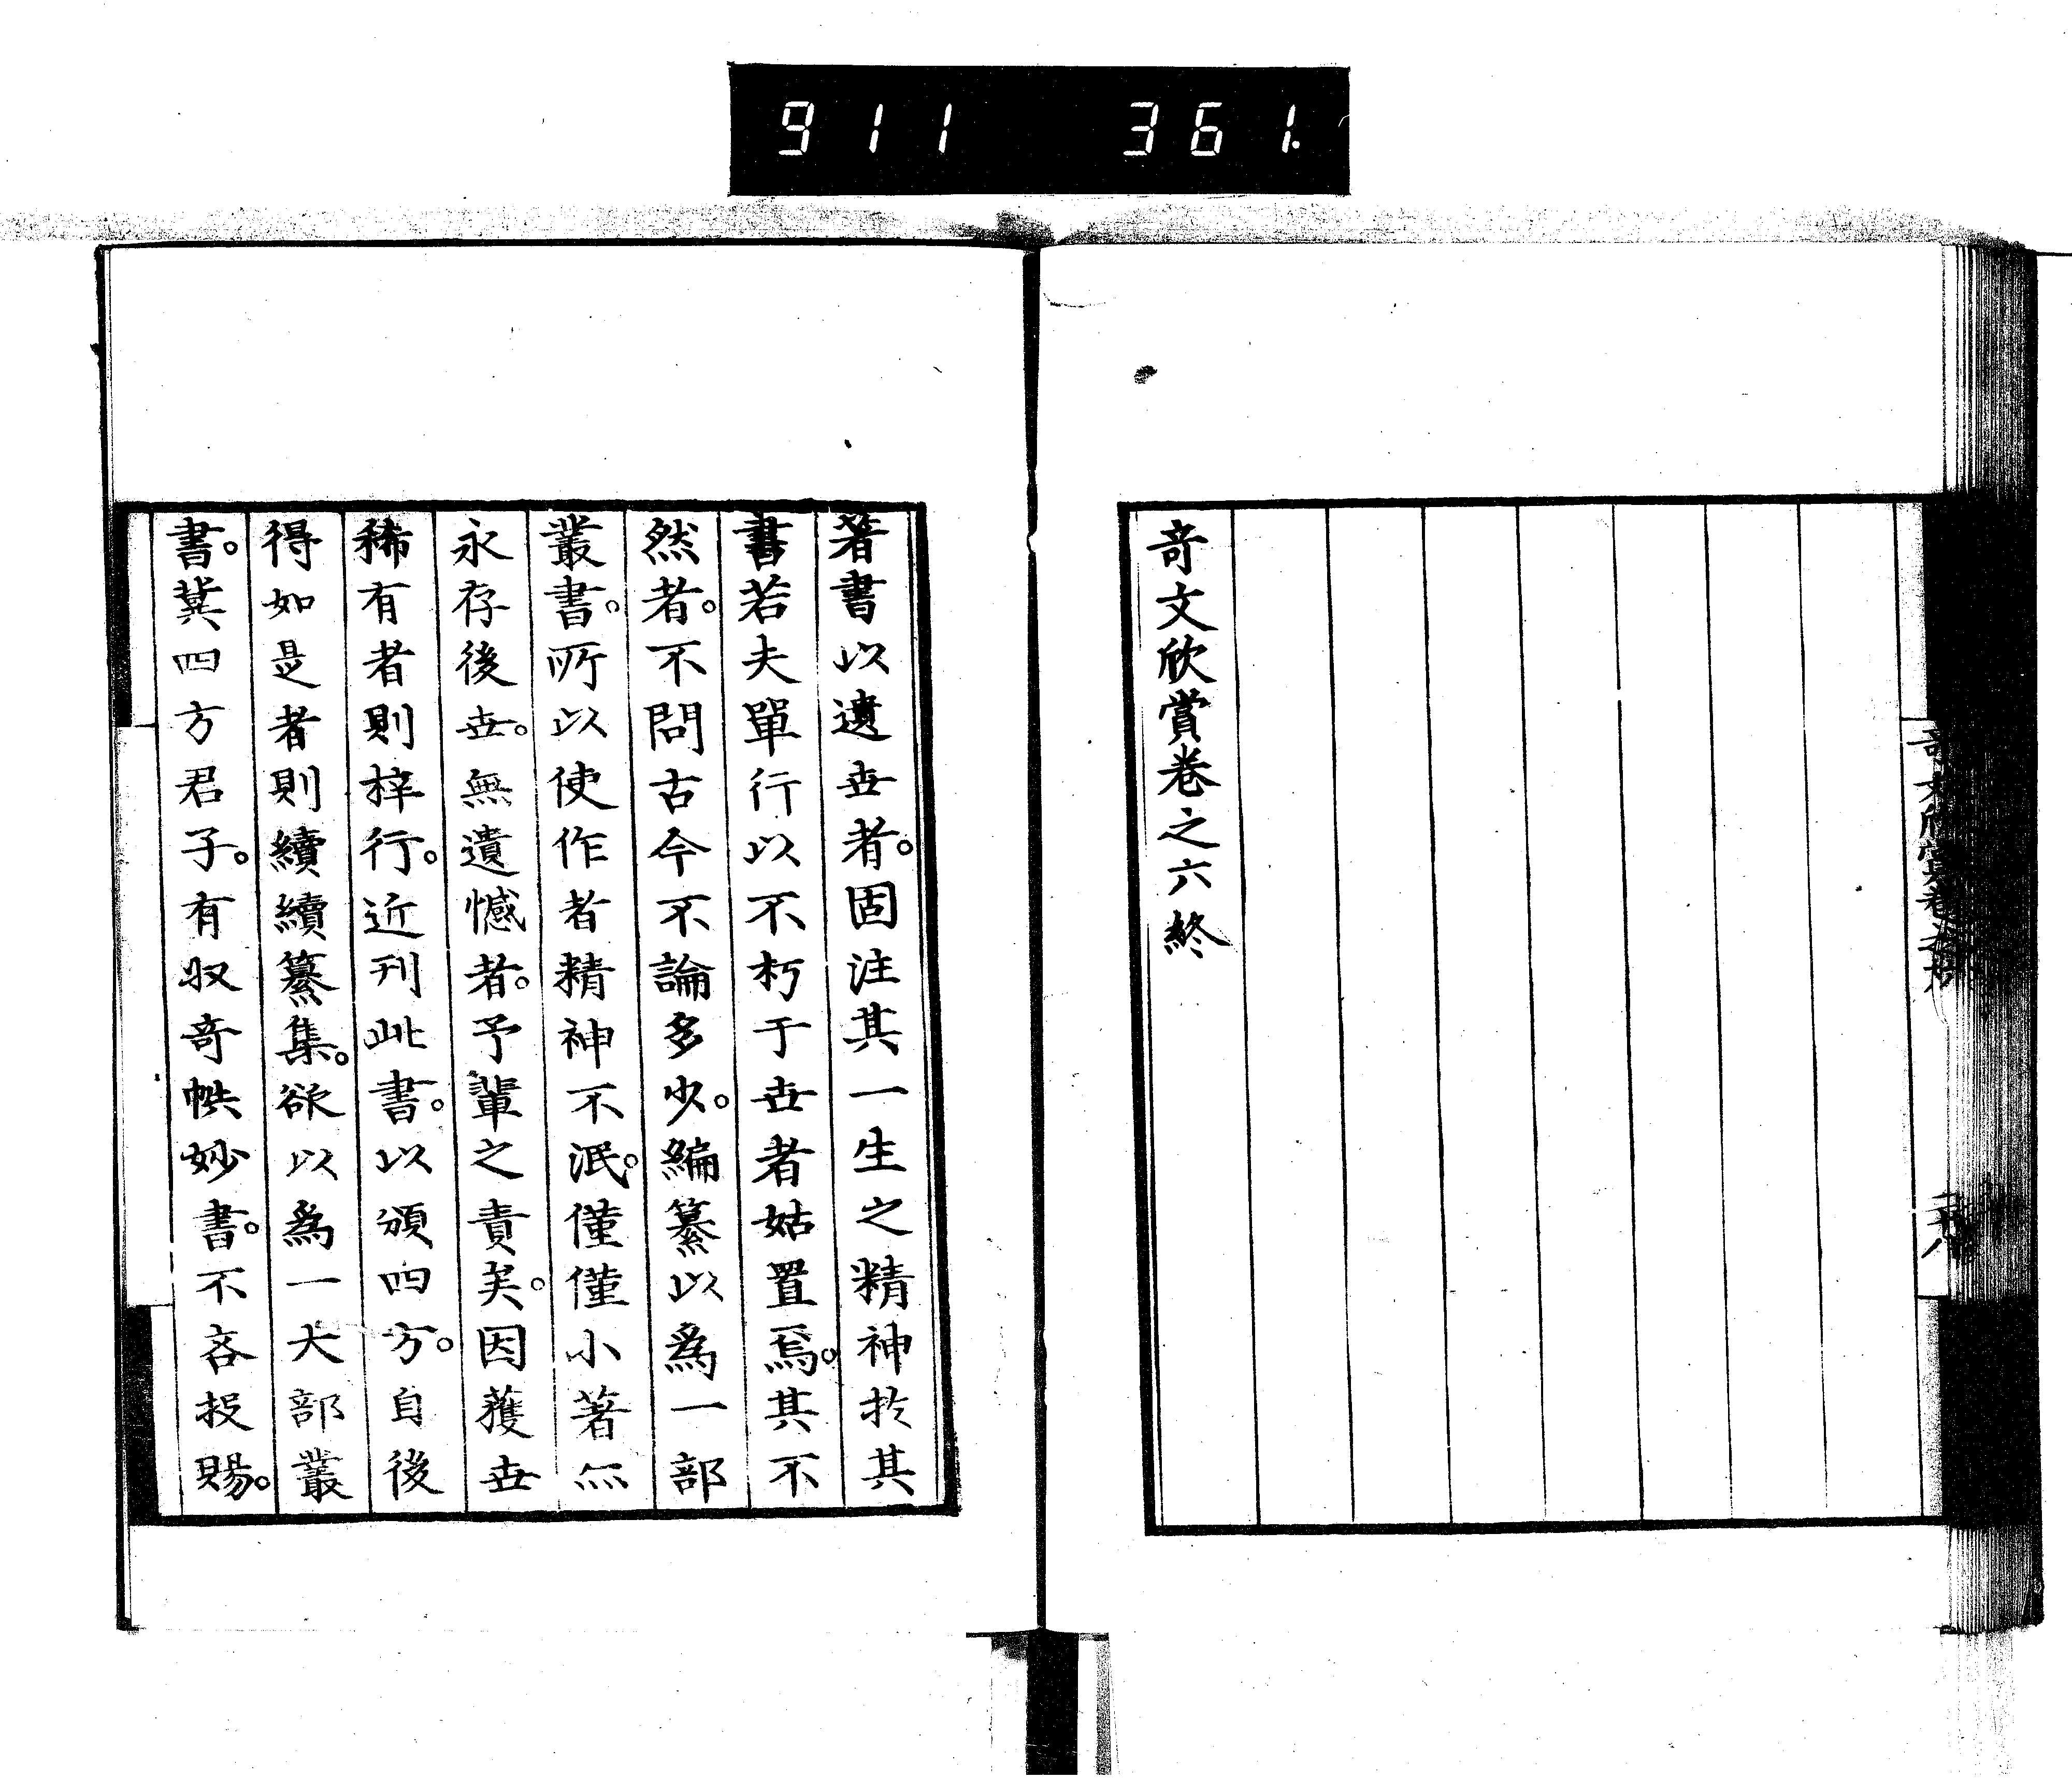 911 361.
奇文欣賞卷之六終
著書以遺世者。固注其一生之精神於其
書若夫單行以不朽于世者姑置焉。其不
然者。不問古今不論多少。編纂以為一部
叢書。所以使作者精神不泯。僅僅小著無
永存後世。無遺憾者。予輩之責矣。因獲世
稀有者則梓行。近刊此書。以頒四方。自後
得如是者則續續纂集。欲以為一大部叢
書。冀四方君子。有収奇帙妙書。不吝投賜。